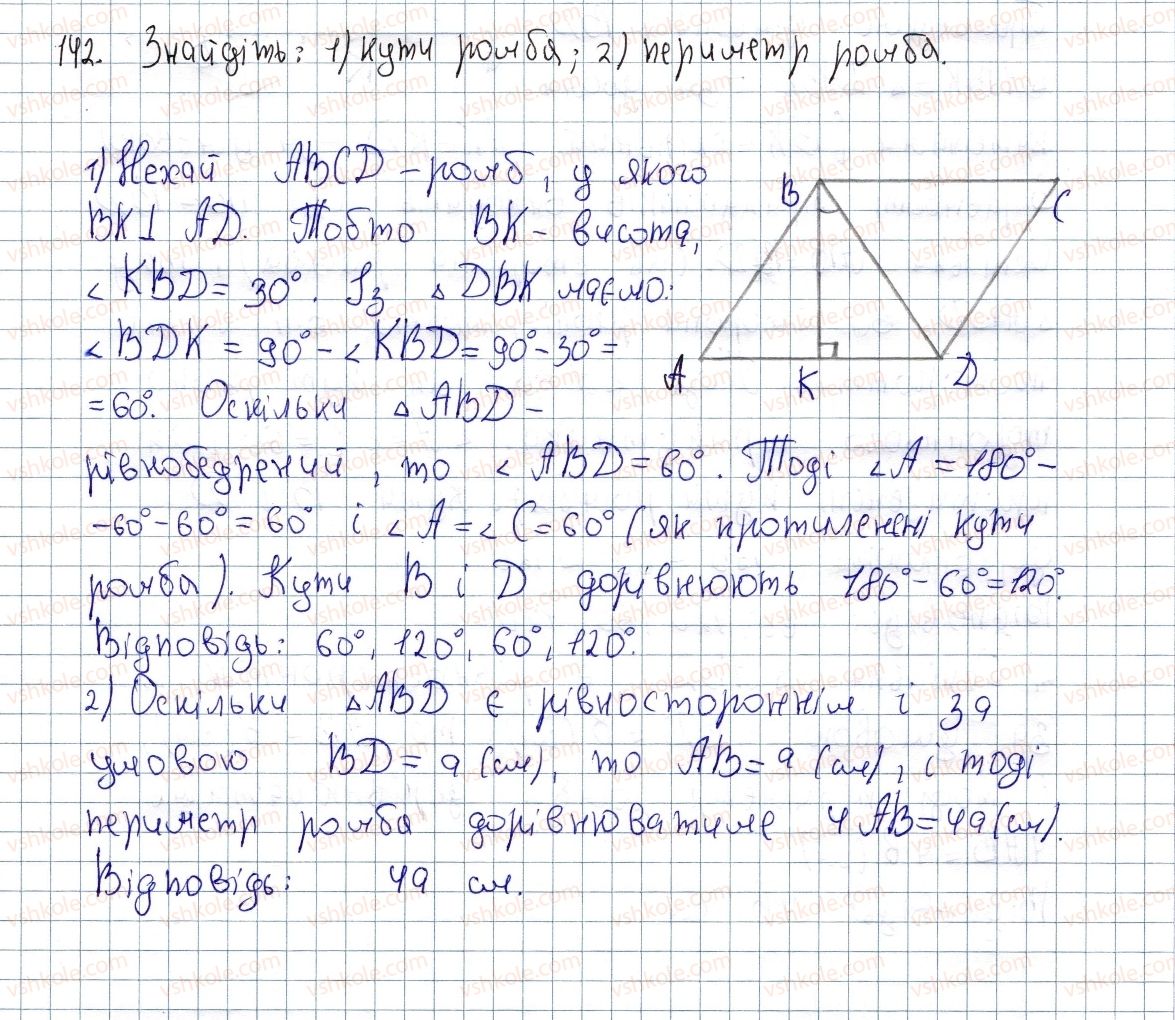 142. Знайдіть: 1) кути ромба; 2) периметр ромба.
1) Нехай ABCD – ромб, у якого
BK⊥ AD. Тобто BK – висота,
∠KBD = 30°. Із △DBK маємо:
∠BDK = 90° – ∠KBD = 90° – 30° =
= 60°. Оскільки △ABD –
рівнобедрений, то ∠ABD = 60°. Тоді ∠A = 180° –
– 60° – 60° = 60° і ∠A = ∠C = 60° (як протилежні кути
ромба). Кути B і D дорівнюють 180° – 60° = 120°.
Відповідь: 60°, 120°, 60°, 120°.
2) Оскільки △ABD є рівностороннім і за
умовою BD = a (см), то AB = a (см), і тоді
периметр ромба дорівнюватиме 4AB = 4a (см).
Відповідь: 4a см.
B
C
A
K
D
vshkole.com